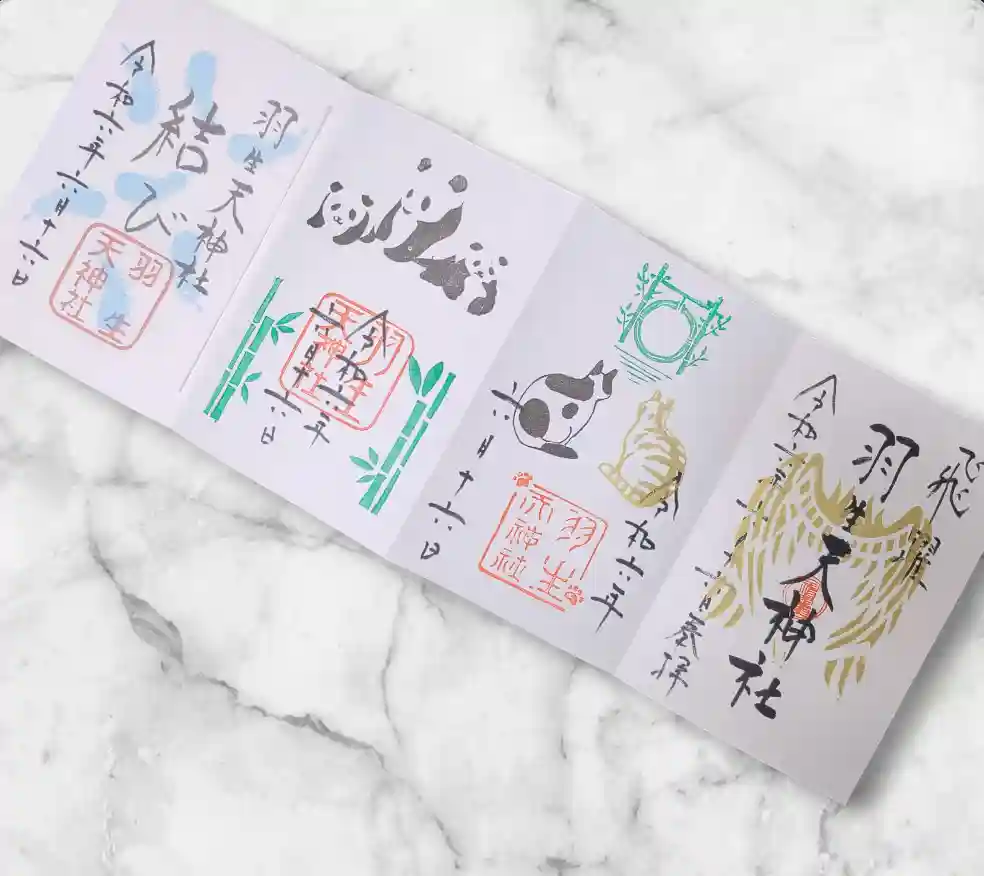 飛躍
羽生天神社
令和六年
奉拝
令和六年
六月十六日
羽生
天神社
令和六年
六月十六日
羽生
天神社
羽生天神社
結び
令和六年六月十六日
羽生
天神社